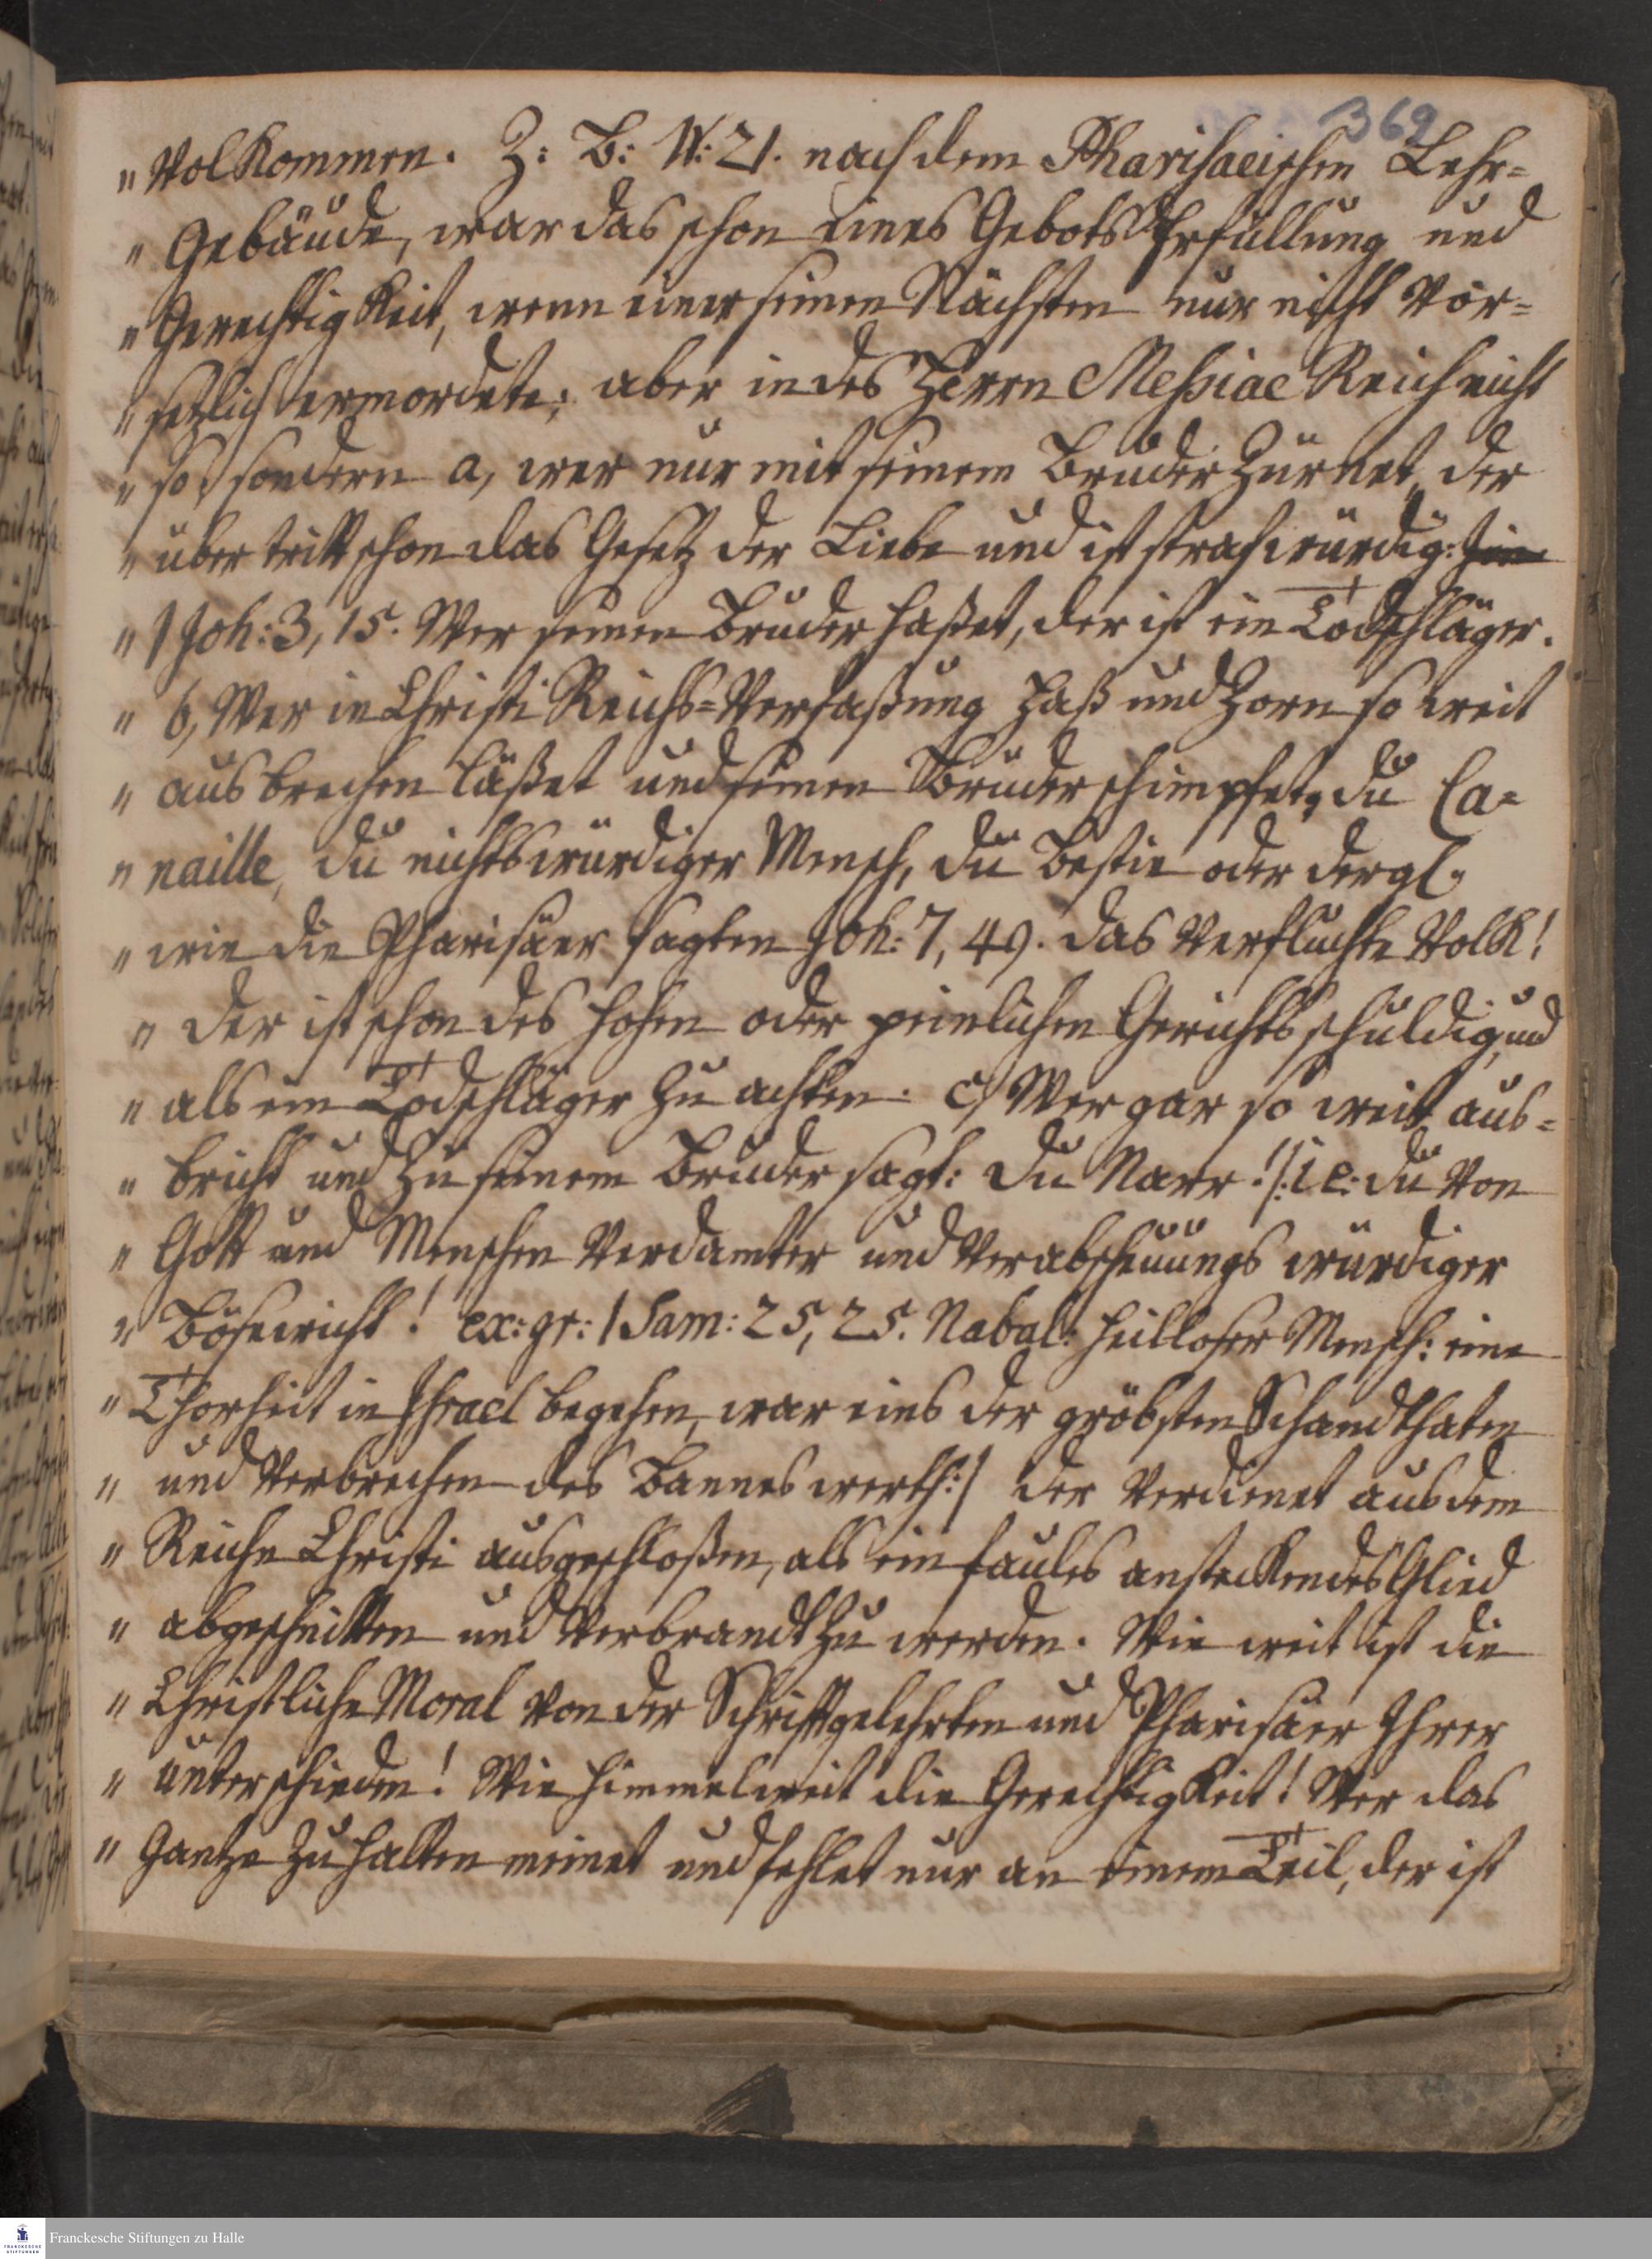 369
„ Volkommen. Z: B: V: 21. nach dem Pharisaeischen Lehr=
„ Gebäude, war das schon eines Gebots Erfüllung und
„ Gerechtigkeit, wenn einer seinen Nächsten nur nicht vor=
„ setzlich ermordete; aber in des Herrn Meßiae Reich nicht
„ so, sondern a, wer nur mit seinem Bruder Zürnet, der
„ übertritt schon das Gesetz der Liebe und ist strafwürdig:
„ 1 Joh: 3, 15. Wer seinen Bruder haßet, der ist ein Todschläger.
„ b, Wer in Christi Reichs=Verfaßung Haß und Zorn so weit
„ ausbrechen läßet und seinen Bruder schimpfet, du Ca=
„ naille, du nichtswürdiger Mensch, du Bestie oder dergl.
„ wie die Pharisäer sagten Joh: 7, 49. das Verfluchte Volk!
„ der ist schon des hohen oder peinlichen Gerichts schuldig, und
„ als ein Todschläger zu achten. c/ Wer gar so weit aus=
„ bricht und zu seinem Bruder sagt: du Narr! /: i e: du von
„ Gott und Menschen Verdamter und Verabscheuungs würdiger
„ Bösewicht! ex: gr: 1 Sam: 25, 25. Nabal: heilloser Mensch: eine
„ Thorheit in Israel begehen, war eins der gröbsten Schandthaten
„ und Verbrechen des Bannes werth :/ der Verdienet aus dem
„ Reiche Christi ausgeschloßen, als ein faules ansteckendes Glied
„ abgeschnitten und Verbrandt zu werden. Wie weit ist die
„ Christliche Moral von der Schriftgelehrten und Pharisäer Ihrer
„ unterschieden! Wie himmelweit die Gerechtigkeit! Wer das
„ Gantze zu halten meinet und fehlet nur an einem Teil, der ist
Franckesche Stiftungen zu Halle